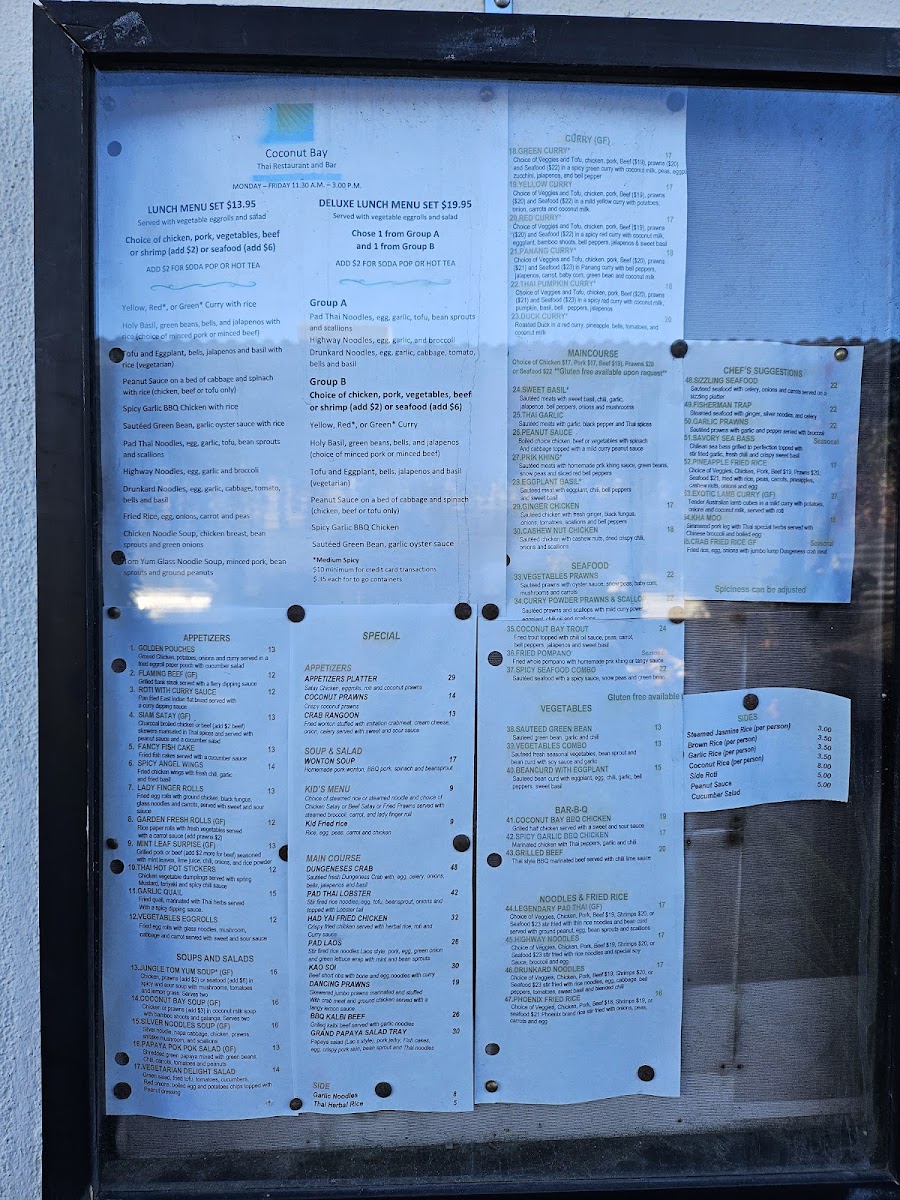 Coconut Bay
Thai Restaurant and Bar
MONDAY – FRIDAY 11.30 A.M. – 3.00 P.M.
LUNCH MENU SET $13.95
Served with vegetable eggrolls and salad
Choice of chicken, pork, vegetables, beef
or shrimp (add $2) or seafood (add $6)
ADD $2 FOR SODA POP OR HOT TEA
Yellow, Red*, or Green* Curry with rice
Holy Basil, green beans, bells, and jalapenos with
rice (choice of minced pork or minced beef)
Tofu and Eggplant, bells, jalapenos and basil with
rice (vegetarian)
Peanut Sauce on a bed of cabbage and spinach
with rice (chicken, beef or tofu only)
Spicy Garlic BBQ Chicken with rice
Sautéed Green Bean, garlic oyster sauce with rice
Pad Thai Noodles, egg, garlic, tofu, bean sprouts
and scallions
Highway Noodles, egg, garlic and broccoli
Drunkard Noodles, egg, garlic, cabbage, tomato,
bells and basil
Fried Rice, egg, onions, carrot and peas
Chicken Noodle Soup, chicken breast, bean
sprouts and green onions
Tom Yum Glass Noodle Soup, minced pork, bean
sprouts and ground peanuts
DELUXE LUNCH MENU SET $19.95
Served with vegetable eggrolls and salad
Chose 1 from Group A
and 1 from Group B
ADD $2 FOR SODA POP OR HOT TEA
Group A
Pad Thai Noodles, egg, garlic, tofu, bean sprouts
and scallions
Highway Noodles, egg, garlic, and broccoli
Drunkard Noodles, egg, garlic, cabbage, tomato,
bells and basil
Group B
Choice of chicken, pork, vegetables, beef
or shrimp (add $2) or seafood (add $6)
Yellow, Red*, or Green* Curry
Holy Basil, green beans, bells, and jalapenos
(choice of minced pork or minced beef)
Tofu and Eggplant, bells, jalapenos and basil
(vegetarian)
Peanut Sauce on a bed of cabbage and spinach
(chicken, beef or tofu only)
Spicy Garlic BBQ Chicken
Sautéed Green Bean, garlic oyster sauce
*Medium Spicy
$10 minimum for credit card transactions
$.35 each for to go containers
CURRY (GF)
18.GREEN CURRY* 17
Choice of Veggies and Tofu, chicken, pork, Beef ($19), prawns ($20)
and Seafood ($22) in a spicy green curry with coconut milk, peas, eggp
zucchini, jalapenos, and bell pepper
19.YELLOW CURRY 17
Choice of Veggies and Tofu, chicken, pork, Beef ($19), prawns
($20) and Seafood ($22) in a mild yellow curry with potatoes,
onion, carrots and coconut milk
20.RED CURRY* 17
Choice of Veggies and Tofu, chicken, pork, Beef ($19), prawns
($20) and Seafood ($22) in a spicy red curry with coconut milk,
eggplant, bamboo shoots, bell peppers, jalapenos & sweet basil
21.PANANG CURRY* 18
Choice of Veggies and Tofu, chicken, pork, beef ($20), prawns
($21) and Seafood ($23) in Panang curry with bell peppers,
jalapenos, carrot, baby corn, green bean and coconut milk
22.THAI PUMPKIN CURRY* 18
Choice of Veggies and Tofu, chicken, pork, Beef ($20), prawns
($21) and Seafood ($23) in a spicy red curry with coconut milk,
pumpkin, basil, bell peppers, jalapenos
23.DUCK CURRY* 20
Roasted Duck in a red curry, pineapple, bells, tomatoes, and
coconut milk
MAINCOURSE
Choice of Chicken $17, Pork $17, Beef $19), Prawns $20
or Seafood $22 **Gluten free available upon request**
24.SWEET BASIL*
Sautéed meats with sweet basil, chili, garlic,
jalapenos, bell peppers, onions and mushrooms
25.THAI GARLIC
Sautéed meats with garlic, black pepper and Thai spices
26.PEANUT SAUCE
Boiled choice chicken, beef or vegetables with spinach
And cabbage topped with a mild curry peanut sauce
27.PRIK KHING*
Sautéed meats with homemade prik khing sauce, green beans,
snow peas and sliced red bell peppers
28.EGGPLANT BASIL*
Sautéed meat with eggplant, chili, bell peppers
and sweet basil
29.GINGER CHICKEN 17
Sautéed chicken with fresh ginger, black fungus,
onions, tomatoes, scallions and bell peppers
30.CASHEW NUT CHICKEN 18
Sautéed chicken with cashew nuts, dried crispy chili,
onions and scallions
SEAFOOD
33.VEGETABLES PRAWNS 22
Sautéed prawns with oyster sauce, snow peas, baby corn,
mushrooms and carrots
34.CURRY POWDER PRAWNS & SCALLO 27
Sautéed prawns and scallops with mild curry powder
35.COCONUT BAY TROUT 24
Fried trout topped with chili oil sauce, peas, carrot,
bell peppers, jalapenos and sweet basil
36.FRIED POMPANO
Fried whole pompano with homemade prik khing or tangy sauce
37.SPICY SEAFOOD COMBO 27
Sautéed seafood with a spicy sauce, snow peas and green bean
Gluten free available
VEGETABLES
38.SAUTEED GREEN BEAN 13
Sautéed green bean, garlic and chili
39.VEGETABLES COMBO 13
Sautéed fresh seasonal vegetables, bean sprout and
bean curd with soy sauce and garlic
40.BEANCURD WITH EGGPLANT 15
Sautéed bean curd with eggplant, egg, chili, garlic, bell
peppers, sweet basil
BAR-B-Q
41.COCONUT BAY BBQ CHICKEN 19
Grilled half chicken served with a sweet and sour sauce
42.SPICY GARLIC BBQ CHICKEN 17
Marinated chicken with Thai peppers, garlic and chili
43.GRILLED BEEF 20
Thai style BBQ marinated beef served with chili lime sauce
NOODLES & FRIED RICE
44.LEGENDARY PAD THAI (GF) 17
Choice of Veggies, Chicken, Pork, Beef $19, Shrimps $20, or
Seafood $23 stir fried with thin rice noodles and bean curd
served with ground peanut, egg, bean sprouts and scallions
45.HIGHWAY NOODLES 17
Choice of Veggies, Chicken, Pork, Beef $19, Shrimps $20, or
Seafood $23 stir fried with rice noodles and special soy
Sauce, broccoli and egg
46.DRUNKARD NOODLES 17
Choice of Veggies, Chicken, Pork, Beef $19, Shrimps $20, or
Seafood $23 stir fried with rice noodles, egg, cabbage, bell
peppers, tomatoes, sweet basil and blended chili
47.PHOENIX FRIED RICE 16
Choice of Veggies, Chicken, Pork, Beef $18, Shrimps $19, or
seafood $21 Phoenix brand rice stir fried with onions, peas,
carrots and egg
CHEF'S SUGGESTIONS
48.SIZZLING SEAFOOD 22
Sautéed seafood with celery, onions and carrots served on a
sizzling platter
49.FISHERMAN TRAP 22
Steamed seafood with ginger, silver noodles, and celery
50.GARLIC PRAWNS 22
Sautéed prawns with garlic and pepper served with broccoli
51.SAVORY SEA BASS Seasonal
Chilean sea bass grilled to perfection topped with
stir fried garlic, fresh chili and crispy sweet basil
52.PINEAPPLE FRIED RICE 17
Choice of Veggies, Chicken, Pork, Beef $19, Prawns $20,
Seafood $21, fried with rice, peas, carrots, pineapples,
cashew nuts, onions and egg
53.EXOTIC LAMB CURRY (GF) 27
Tender Australian lamb cubes in a mild curry with potatoes,
onions and coconut milk, served with roti
54.KHA MOO
Simmered pork leg with Thai special herbs served with
Chinese broccoli and boiled egg
55.CRAB FRIED RICE GF Seasonal
Fried rice, egg, onions with jumbo lump Dungeness crab meat
Spiciness can be adjusted
SIDES
Steamed Jasmine Rice (per person) 3.00
Brown Rice (per person) 3.50
Garlic Rice (per person) 3.50
Coconut Rice (per person) 3.50
Side Roti 8.00
Peanut Sauce 5.00
Cucumber Salad 5.00
APPETIZERS
1. GOLDEN POUCHES 13
Ground Chicken, potatoes, onions and curry served in a
fried eggroll paper pouch with cucumber salad
2. FLAMING BEEF (GF) 12
Grilled flank steak served with a fiery dipping sauce
3. ROTI WITH CURRY SAUCE 12
Pan fried East Indian flat bread served with
a curry dipping sauce
4. SIAM SATAY (GF) 13
Charcoal broiled chicken or beef (add $2 beef)
skewers marinated in Thai spices and served with
peanut sauce and a cucumber salad
5. FANCY FISH CAKE 13
Fried fish cakes served with a cucumber sauce
6. SPICY ANGEL WINGS 14
Fried chicken wings with fresh chili, garlic
and fried basil
7. LADY FINGER ROLLS 13
Fried egg rolls with ground chicken, black fungus,
glass noodles and carrots, served with sweet and sour
sauce
8. GARDEN FRESH ROLLS (GF) 12
Rice paper rolls with fresh vegetables served
with a carrot sauce (add prawns $2)
9. MINT LEAF SURPISE (GF) 13
Grilled pork or beef (add $2 more for beef) seasoned
with mint leaves, lime juice, chili, onions, and rice powder
10.THAI HOT POT STICKERS 12
Chicken vegetable dumplings served with spring
Mustard, teriyaki and spicy chili sauce
11.GARLIC QUAIL 15
Fried quail, marinated with Thai herbs served
With a spicy dipping sauce
12.VEGETABLES EGGROLLS 12
Fried egg rolls with glass noodles, mushroom,
cabbage and carrot served with sweet and sour sauce
SOUPS AND SALADS
13.JUNGLE TOM YUM SOUP* (GF) 16
Chicken, prawns (add $3) or seafood (add $6) in
spicy and sour soup with mushrooms, tomatoes
and lemon grass. Serves two
14.COCONUT BAY SOUP (GF) 16
Chicken or prawns (add $3) in coconut milk soup
with bamboo shoots and galanga. Serves two
15.SILVER NOODLES SOUP (GF) 16
Silver noodle, napa cabbage, chicken, prawns,
smoke mushroom, and scallions
16.PAPAYA POK POK SALAD (GF) 13
Shredded green papaya mixed with green beans,
Chili, carrots, tomatoes and peanuts
17.VEGETARIAN DELIGHT SALAD 14
Green salad, fried tofu, tomatoes, cucumbers,
Red onions, boiled egg and potatoes chips topped with
Peanut dressing
SPECIAL
APPETIZERS
APPETIZERS PLATTER 29
Satay Chicken, eggrolls, roti and coconut prawns
COCONUT PRAWNS 14
Crispy coconut prawns
CRAB RANGOON 13
Fried wonton stuffed with imitation crabmeat, cream cheese,
onion, celery served with sweet and sour sauce
SOUP & SALAD
WONTON SOUP 17
Homemade pork wonton, BBQ pork, spinach and beansprout
KID'S MENU 9
Choice of steamed rice or steamed noodle and choice of
Chicken Satay or Beef Satay or Fried Prawns served with
steamed broccoli, carrot, and lady finger roll
Kid Fried rice 9
Rice, egg, peas, carrot and chicken
MAIN COURSE
DUNGENESES CRAB 48
Sautéed fresh Dungeness Crab with, egg, celery, onions,
bells, jalapenos and basil
PAD THAI LOBSTER 42
Stir fried rice noodles, egg, tofu, beansprout, onions and
topped with Lobster tail
HAD YAI FRIED CHICKEN 32
Crispy fried chicken served with herbal rice, roti and
Curry sauce
PAD LAOS 26
Stir fried rice noodles Laos style, pork, egg, green onion
and green lettuce wrap with mint and bean sprouts
KAO SOI 30
Beef short ribs with bone and egg noodles with curry
DANCING PRAWNS 19
Skewered jumbo prawns marinated and stuffed
With crab meat and ground chicken served with a
tangy lemon sauce
BBQ KALBI BEEF 26
Grilled kalbi beef served with garlic noodles
GRAND PAPAYA SALAD TRAY 30
Papaya salad (Lao's style), pork jerky, Fish cakes,
egg, crispy pork skin, bean sprout and Thai noodles
SIDE
Garlic Noodles 8
Thai Herbal Rice 5